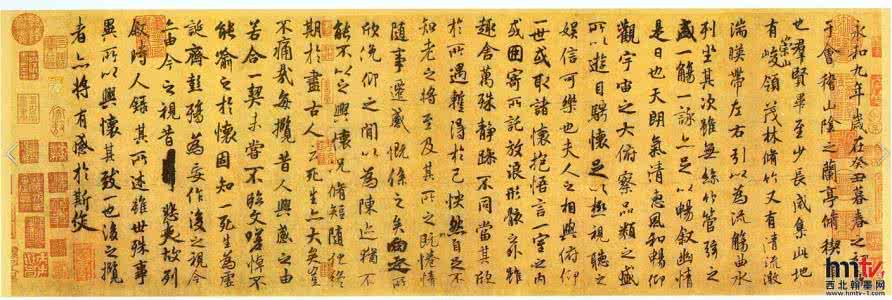 永和九年歲在癸丑暮春之
于會稽山陰之蘭亭脩稧
也群賢畢至少長咸集此地
有崇山峻領茂林脩竹又有清流激
湍暎帶左右引以為流觴曲水
列坐其次雖無絲竹管弦之
盛一觴一詠亦足以暢敘幽情
是日也天朗氣清惠風和暢仰
觀宇宙之大俯察品類之盛
所以遊目騁懷足以極視聽之
娛信可樂也夫人之相與俯仰
一世或取諸懷抱悟言一室之內
或因寄所託放浪形骸之外雖
趣舍萬殊靜躁不同當其欣
於所遇暫得於己怏然自足不
知老之將至及其所之既惓情
隨事遷感慨係之矣向之所
欣俛仰之間以為陳迹猶不
能不以之興懷況脩短隨化終
期於盡古人云死生亦大矣豈
不痛哉每攬昔人興感之由
若合一契未嘗不臨文嗟悼不
能喻之於懷固知一死生為虛
誕齊彭殤為妄作後之視今
亦由今之視昔悲夫故列
敘時人錄其所述雖世殊事
異所以興懷其致一也後之攬
者亦將有感於斯文
hmtv
西北翰墨网
www.hmtv-1.com